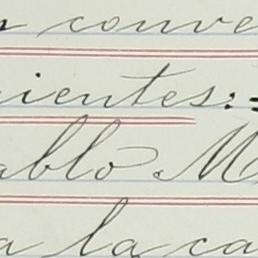 conve
cientes:=
ablo M
a la ca